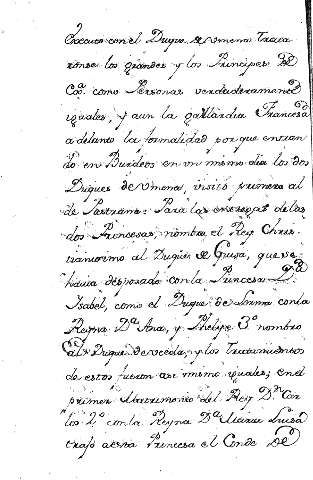 executó con el Duque de Umena. Trata
ronse los grandes y los Principes de
Coa. como Personas verdaderamente
iguales, y aun la gallardia Francesa
adelantó la formalidad porque entran
do en Burdeos en un mismo dia los dos
Duques de Umena, visitó primero al
de Pastrana. Para las entregas de las
dos Princesas, nombró el Rey Chris
tianissimo al Duque de Guisa, que se
havia desposado con la Princesa Da.
Isabel, como el Duque de Lerma con la
Reyna Da. Ana, y Phelipe 3o. nombró
al Duque de Uceda, y los tratamientos
de estos fueron asi mismo iguales; en el
primer Matrimonio del Rey Dn. Car
los 2o. con la Reyna Da. Maria Luisa
trajo a esta Princesa el Conde de